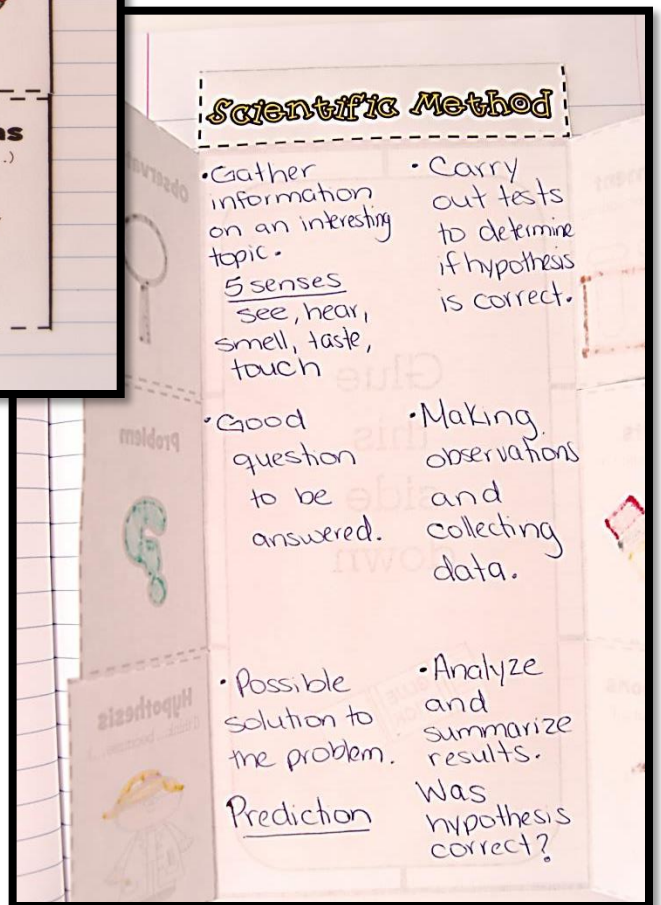 Scientific Method
•Gather
information
on an interesting
topic.
5 senses
see, hear,
smell, taste,
touch
•Good
question
to be
answered.
•Possible
solution to
the problem.
Prediction
•Carry
out tests
to determine
if hypothesis
is correct.
•Making
observations
and
collecting
data.
•Analyze
and
summarize
results.
Was
hypothesis
correct?
Problem
Hypothesis
Glue
this
side
down